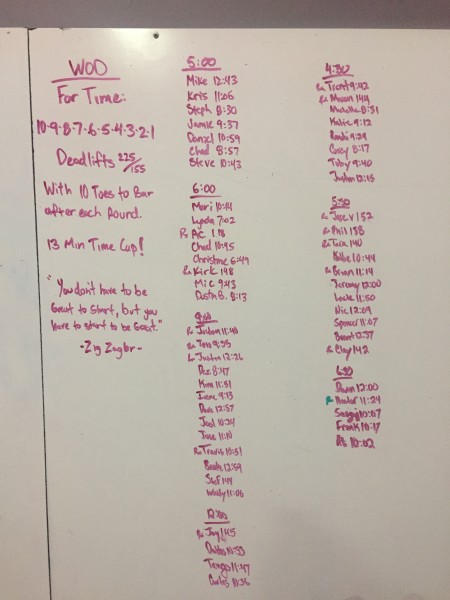 WOD
For Time:
10-9-8-7-6-5-4-3-2-1
Deadlifts 225/155
With 10 Toes to Bar
after each Round.
13 Min Time Cap!
"You don't have to be
Great to start, but you
have to start to be Great."
- Zig Ziglar -
5:00
Mike 12:43
Kris 11:06
Steph 8:30
Jamie 9:37
Daniel 10:59
Chad 8:57
Steve 10:43
6:00
Mari 10:14
Lynda 7:02
Rx AC 118
Chad 10:45
Christine 6:49
Rx Kirk 148
Mic 9:43
Dustin B. 8:13
9:00
Rx Tom 9:55
Rx Justin 12:26
Dez 8:47
Kim 11:51
Irene 9:13
Dave 12:57
Joel 10:24
Jose 11:10
Rx Travis 10:51
12:59
Stef 144
Wally 11:06
12:00
Rx Jay 145
10:53
Tango 11:47
Carlos 11:36
4:30
Rx Trent 9:42
Rx 144
Michelle 8:31
Katie 9:12
9:29
Casey 8:17
Toby 9:40
Justin 12:15
5:30
Rx Jose V 152
Rx Phil 138
Rx Tara 140
Kellie 10:44
Rx Brian 11:14
Jeremy 12:00
11:50
Nic 12:09
Spencer 11:07
Brent 12:37
Rx Clay 142
6:30
Dawn 12:00
Rx 11:24
10:07
Frank 10:17
10:02